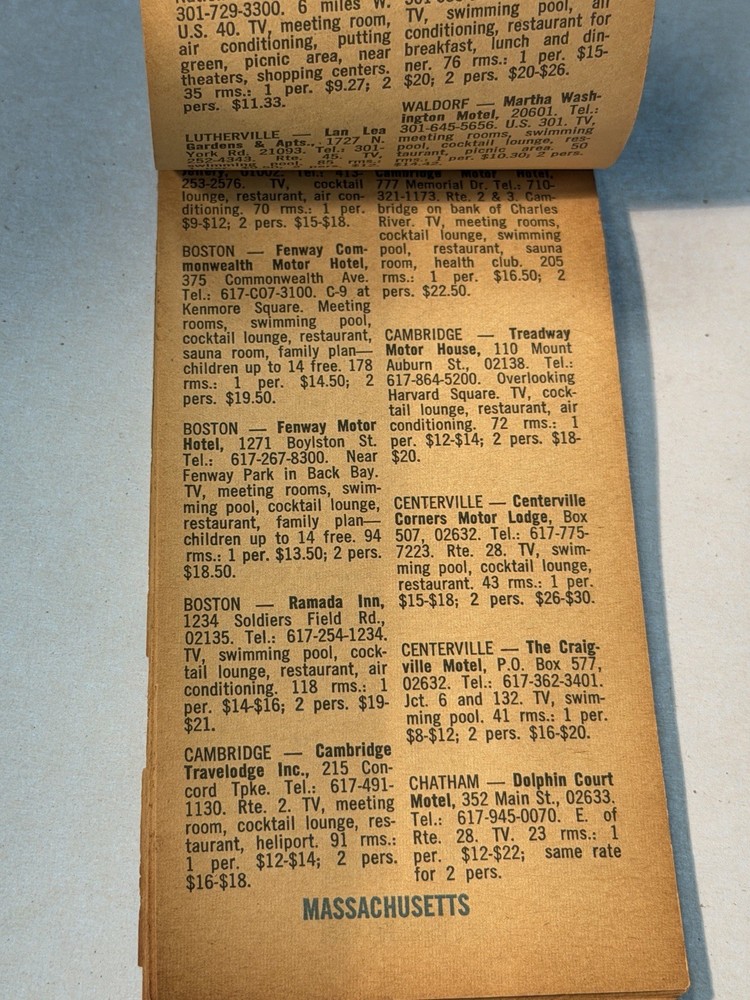 301-729-3300. 6 miles W.
U.S. 40. TV, meeting room,
air conditioning, putting
green, picnic area, near
theaters, shopping centers.
35 rms.: 1 per. $9.27; 2
pers. $11.33.
LUTHERVILLE — Lan Lea
Gardens & Apts., 1727 N.
York Rd. 21093. Tel.: 301-
252-4343. Rte. 45. TV,
swimming pool. 85 rms.:
TV, swimming pool, air
conditioning, restaurant for
breakfast, lunch and din-
ner. 76 rms.: 1 per. $15-
$20; 2 pers. $20-$26.
WALDORF — Martha Wash-
ington Motel, 20601. Tel.:
301-645-5656. U.S. 301. TV,
meeting rooms, swimming
pool, cocktail lounge, res-
taurant, picnic area. 50
rms.: 1 per. $10.30; 2 pers.
Jeffery, 01002. Tel.: 413-
253-2576. TV, cocktail
lounge, restaurant, air con-
ditioning. 70 rms.: 1 per.
$9-$12; 2 pers. $15-$18.
BOSTON — Fenway Com-
monwealth Motor Hotel,
375 Commonwealth Ave.
Tel.: 617-C07-3100. C-9 at
Kenmore Square. Meeting
rooms, swimming pool,
cocktail lounge, restaurant,
sauna room, family plan—
children up to 14 free. 178
rms.: 1 per. $14.50; 2
pers. $19.50.
BOSTON — Fenway Motor
Hotel, 1271 Boylston St.
Tel.: 617-267-8300. Near
Fenway Park in Back Bay.
TV, meeting rooms, swim-
ming pool, cocktail lounge,
restaurant, family plan—
children up to 14 free. 94
rms.: 1 per. $13.50; 2 pers.
$18.50.
BOSTON — Ramada Inn,
1234 Soldiers Field Rd.,
02135. Tel.: 617-254-1234.
TV, swimming pool, cock-
tail lounge, restaurant, air
conditioning. 118 rms.: 1
per. $14-$16; 2 pers. $19-
$21.
CAMBRIDGE — Cambridge
Travelodge Inc., 215 Con-
cord Tpke. Tel.: 617-491-
1130. Rte. 2. TV, meeting
room, cocktail lounge, res-
taurant, heliport. 91 rms.:
1 per. $12-$14; 2 pers.
$16-$18.
Cambridge Motor Hotel,
777 Memorial Dr. Tel.: 710-
321-1173. Rte. 2 & 3. Cam-
bridge on bank of Charles
River. TV, meeting rooms,
cocktail lounge, swimming
pool, restaurant, sauna
room, health club. 205
rms.: 1 per. $16.50; 2
pers. $22.50.
CAMBRIDGE — Treadway
Motor House, 110 Mount
Auburn St., 02138. Tel.:
617-864-5200. Overlooking
Harvard Square. TV, cock-
tail lounge, restaurant, air
conditioning. 72 rms.: 1
per. $12-$14; 2 pers. $18-
$20.
CENTERVILLE — Centerville
Corners Motor Lodge, Box
507, 02632. Tel.: 617-775-
7223. Rte. 28. TV, swim-
ming pool, cocktail lounge,
restaurant. 43 rms.: 1 per.
$15-$18; 2 pers. $26-$30.
CENTERVILLE — The Craig-
ville Motel, P.O. Box 577,
02632. Tel.: 617-362-3401.
Jct. 6 and 132. TV, swim-
ming pool. 41 rms.: 1 per.
$8-$12; 2 pers. $16-$20.
CHATHAM — Dolphin Court
Motel, 352 Main St., 02633.
Tel.: 617-945-0070. E. of
Rte. 28. TV. 23 rms.: 1
per. $12-$22; same rate
for 2 pers.
MASSACHUSETTS